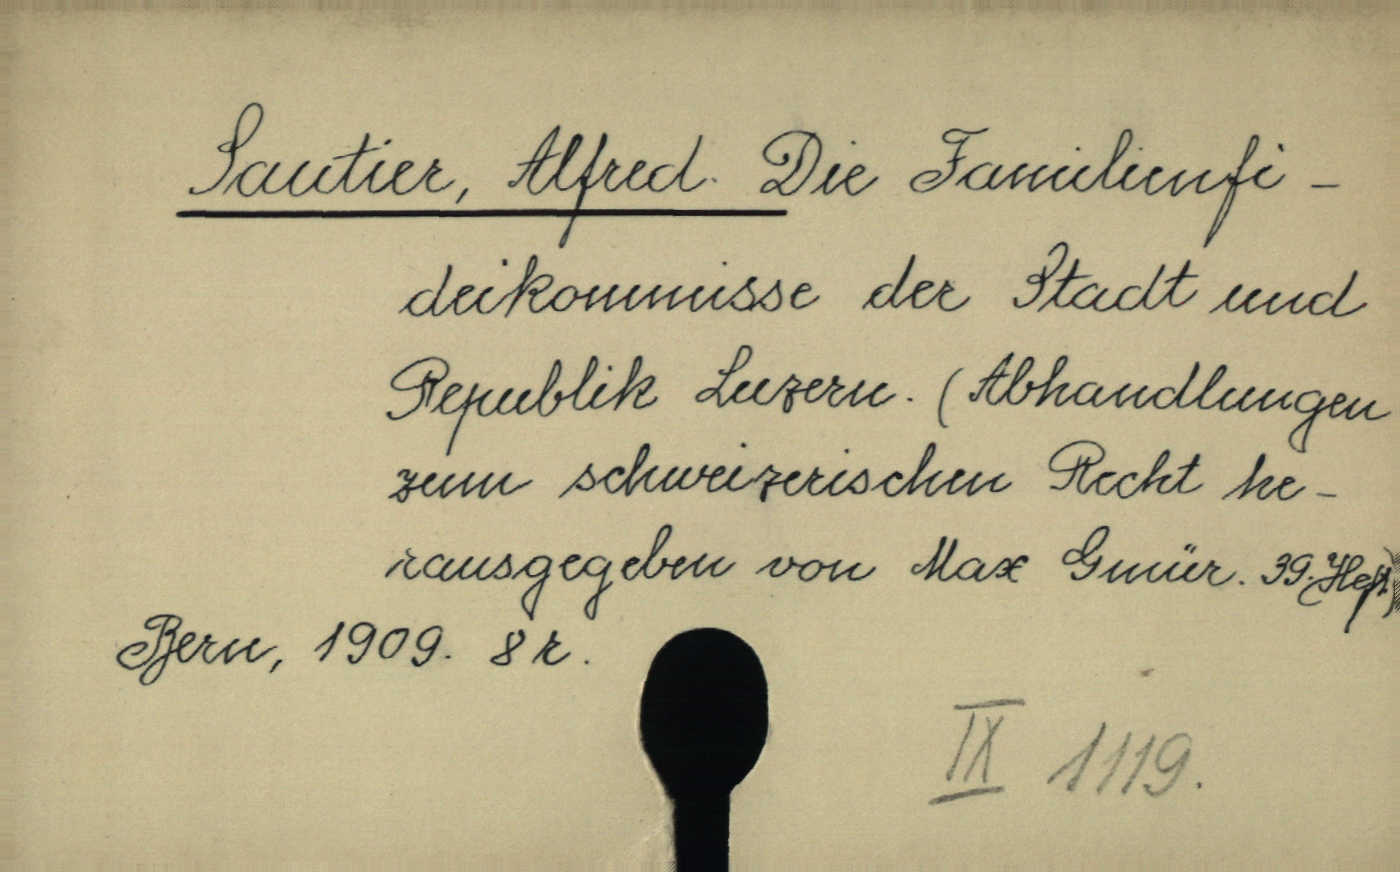 Sautier, Alfred. Die Familienfi-
deikommisse der Stadt und
Republik Luzern. (Abhandlungen
zum schweizerischen Recht he-
rausgegeben von Max Gmür. 39. Heft)
Bern, 1909. 8r.
IX 1119.